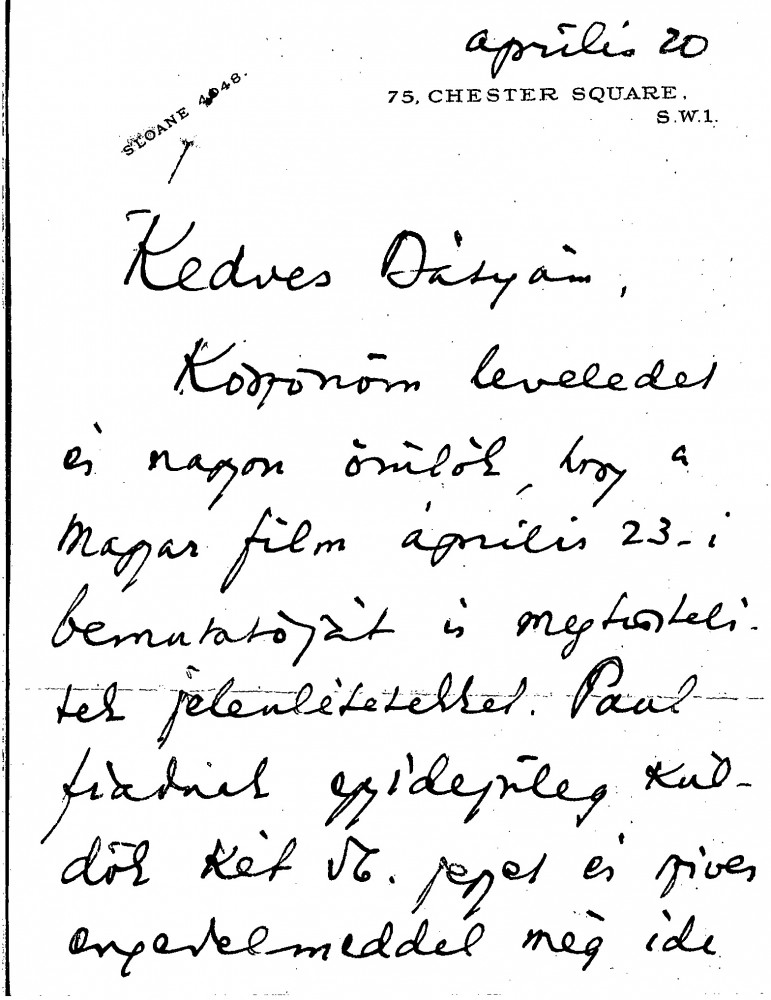 április 20
SLOANE 4048.
75, CHESTER SQUARE,
S.W.1.
Kedves Bátyám,
Köszönöm leveledet
és nagyon örülök, hogy a
Magyar film április 23-i
bemutatóját is megtiszteli-
tek jelenlétetekkel. Paul
fiadnak egyidejűleg kül-
dök két jegyet és szíves
engedelmeddel még ide